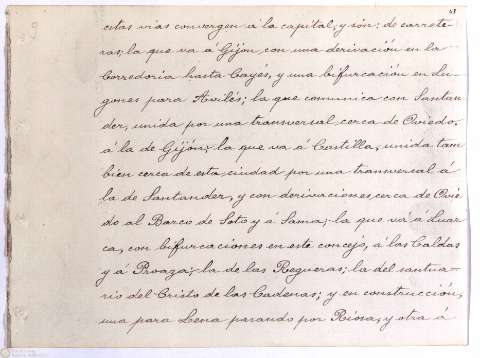 43
estas vias convergen á la capital, y són: de carrete-
ras: la que va á Gijón con una derivación en la
Corredoria hasta Cayés, y una bifurcación en Lu-
gones para Avilés; la que comunica con Santan-
der, unida por una transversal cerca de Oviedo,
á la de Gijón; la que va á Castilla, unida tam
bien cerca de esta ciudad por una transversal á
la de Santander, y con derivaciones cerca de Ovie
do al Barco de Soto y á Sama; la que va á Luar
ca, con bifurcaciones en este concejo, á las Caldas
y á Proaza; la de las Regueras; la del santua-
rio del Cristo de las Cadenas; y en construcción,
una para Lena pasando por Riosa, y otra á